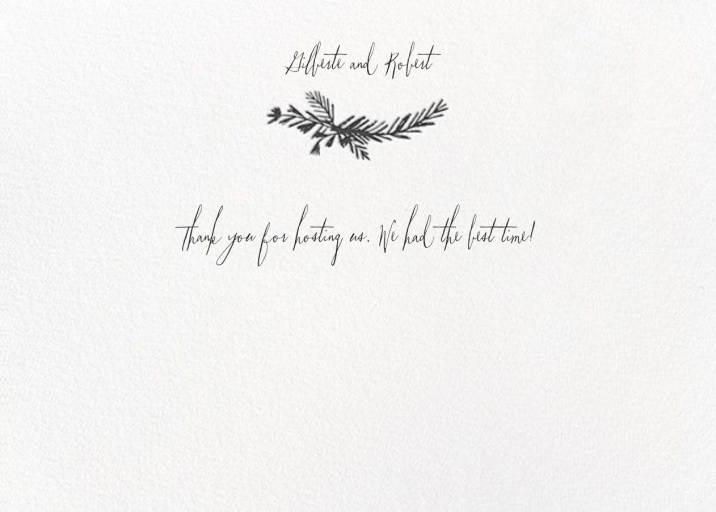 Gilberte and Robert
Thank you for hosting us. We had the best time!